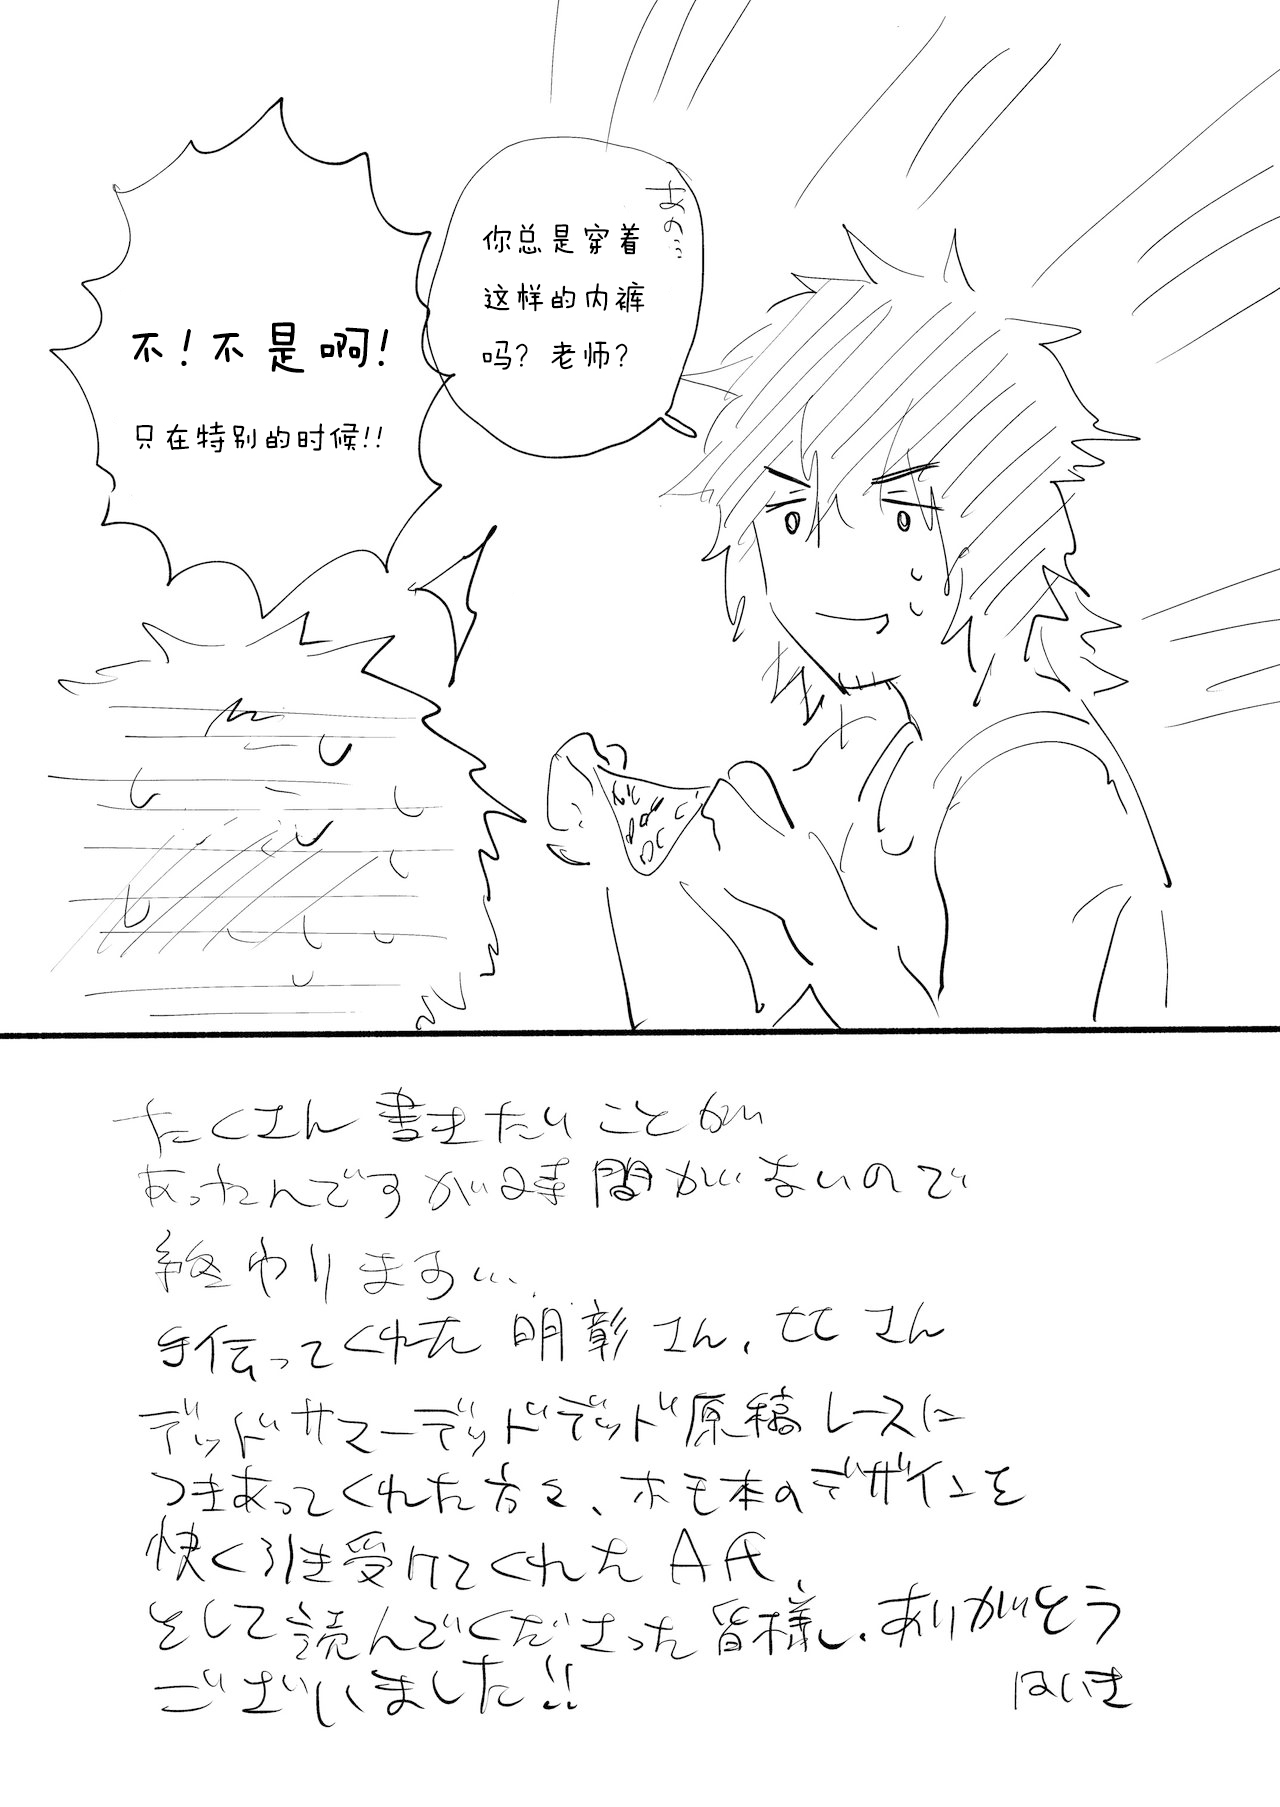 あの…
你总是穿着
这样的内裤
吗？老师？
不！不是啊！
只在特别的时候！！
たくさん書きたいことが
あったんですが時間がないので
終わります…
手伝ってくれた明彰さん、ヒヒさん
デッドサマーデッドデッド原稿レースに
つきあってくれた方々、ホモ本のデザインを
快く引き受けてくれたA氏
そして読んでくださった皆様、ありがとう
ございました!!
はいき